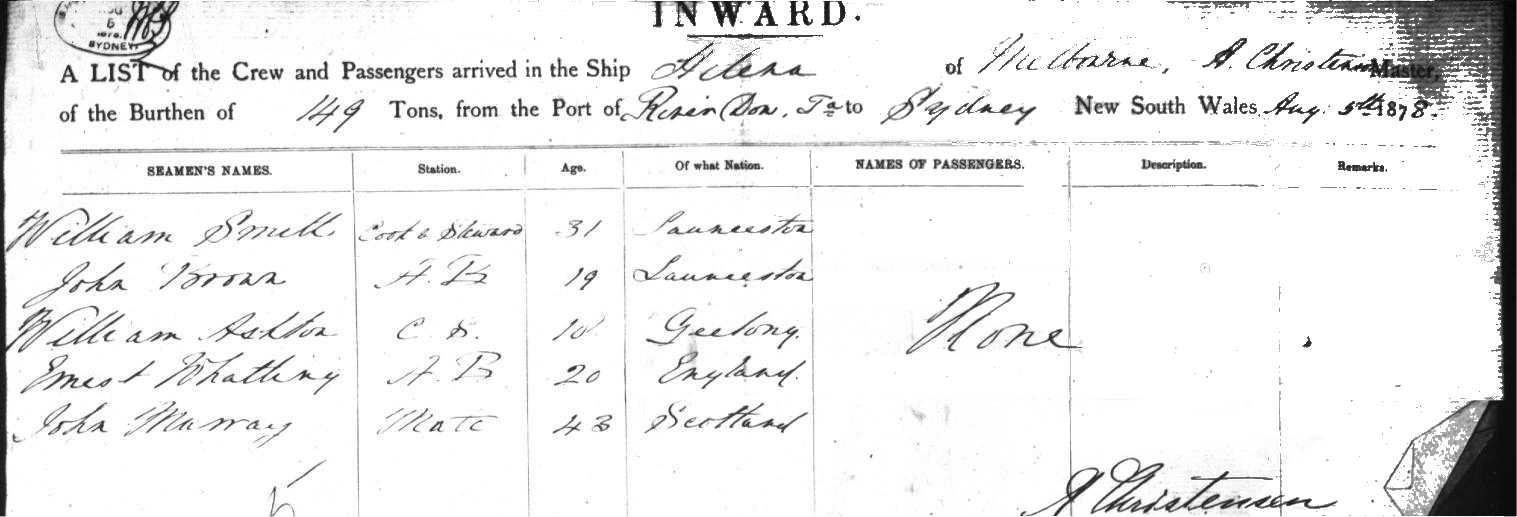 INWARD.
SYDNEY
A LIST of the Crew and Passengers arrived in the Ship Helena of Melbourne, A. Christensen Master,
of the Burthen of 149 Tons, from the Port of River Don, Ta to Sydney New South Wales Aug. 5th 1878.
SEAMEN'S NAMES. Station. Age. Of what Nation. NAMES OF PASSENGERS. Description. Remarks.
William Smith Cook & Steward 31 Launceston
John Brown A.B 19 Launceston
William Ashton O.S. Geelong.
None
Ernest Whatling A.B 20 England.
John Murray Mate 43 Scotland
5
A Christensen